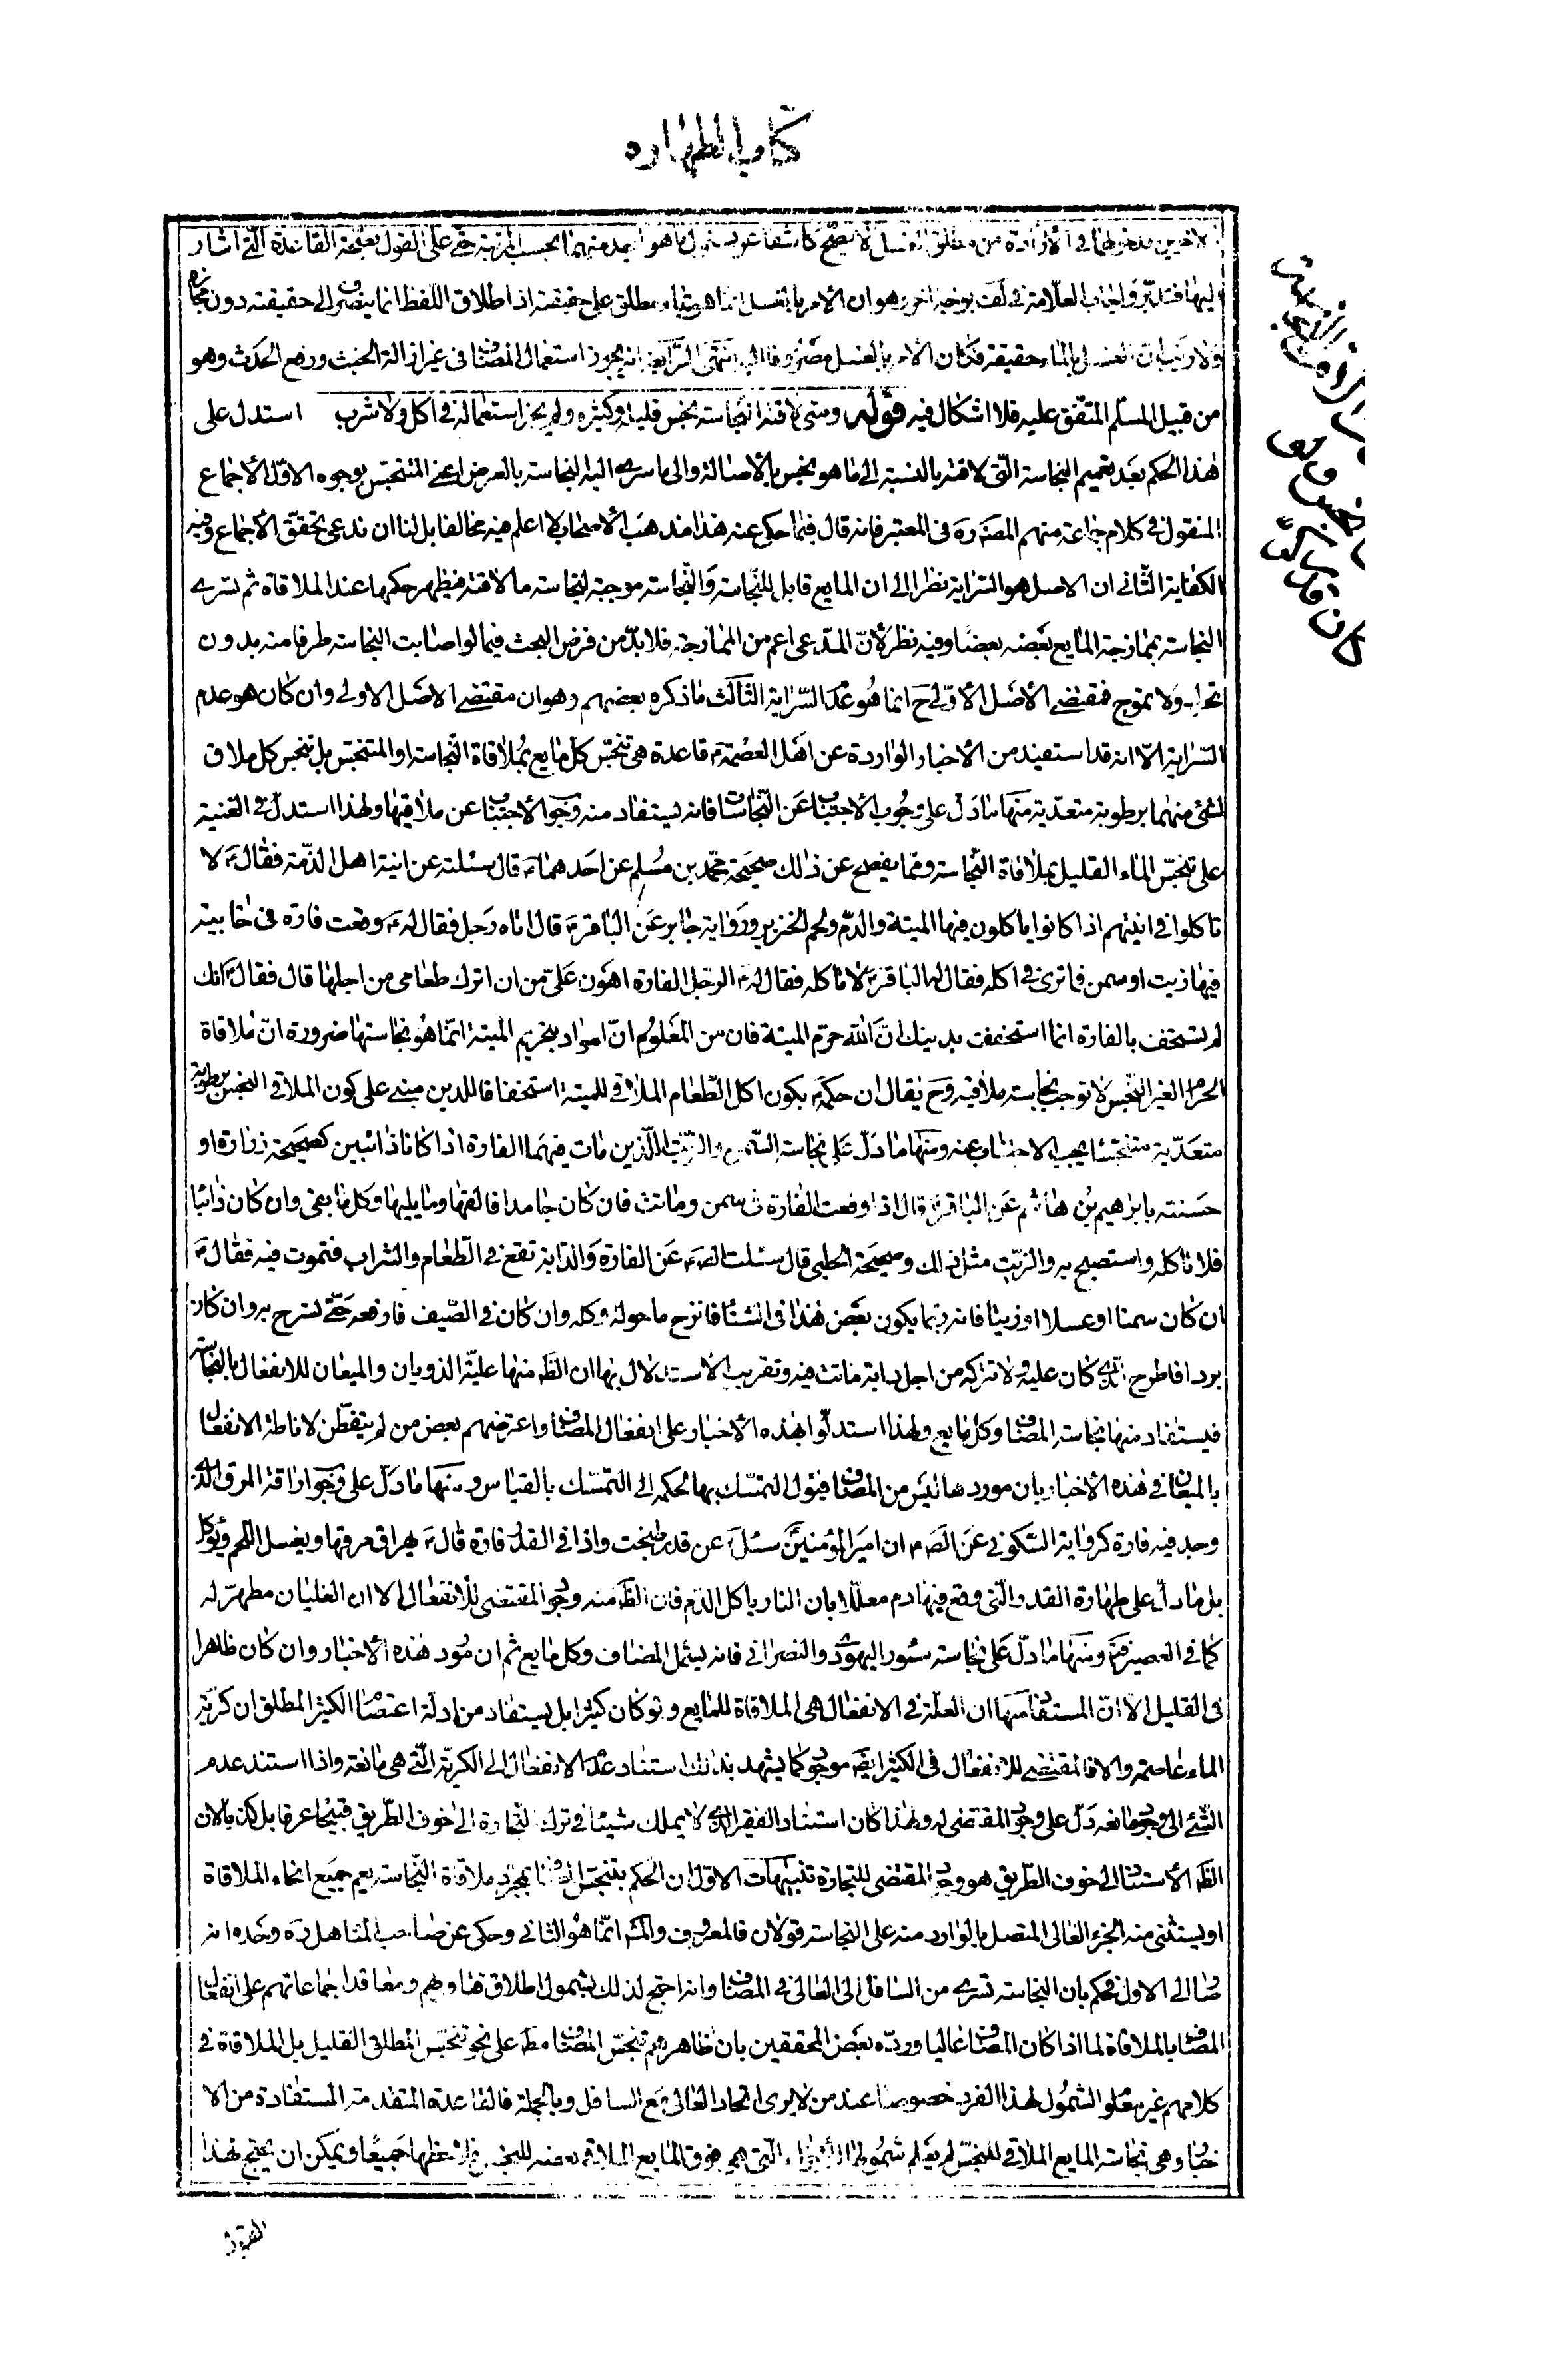 كتاب الطهارة
الأخيرين مدخولها في الإرادة من مطلق الغسل لا يصلح كاشفا عن حتى على القول بصحة القاعدة التي اشار
اليها فتدبر واجاب العلامة في لف بوجه اخر وهو ان الامر بالغسل انما هو بماء مطلق على حقيقته اذ اطلاق اللفظ انما ينصرف الى حقيقته دون مجازه
ولا ريب ان الغسل بالماء حقيقة فكان الامر بالغسل مصروفا اليه انتهى الرابع انه يجوز استعمال المضاف في غير ازالة الخبث ورفع الحدث وهو
من قبيل المسلّم المتّفق عليه فلا اشكال فيه قوله ومتى لاقته النجاسة نجس قليله وكثيره ولم يجز استعماله في اكل ولا شرب استدل على
هذا الحكم بعد تعميم النجاسة التي لاقته بالنسبة الى ما هو نجس بالأصالة والى ما سرى اليه النجاسة بالعرض اعني المتنجّس بوجوه الاوّل الأجماع
المنقول في كلام جماعة منهم المصنّف ره في المعتبر فانه قال فيما حكى عنه هذا مذهب الأصحاب لا اعلم فيه مخالفا بل لنا ان ندعى تحقق الأجماع وفيه
الكفاية الثّاني ان الاصل هو السّراية نظرا الى ان المايع قابل للنّجاسة والنّجاسة موجبة لنجاسة ما لاقته فيظهر حكمها عند الملاقاة ثم تسري
النجاسة بممازجة المايع بعضه بعضا وفيه نظر لأنّ المدّعى اعم من الممازجة فلا بدّ من فرض البحث فيما لو اصابت النجاسة طرفا منه بدون
تحرك ولا تموّج فمقتضى الأصل الأوّلى ح انما هو عدم السّراية الثالث ما ذكره بعضهم وهو ان مقتضى الاصل الاولى وان كان هو عدم
السّراية الّا انه قد استفيد من الأخبار الواردة عن اهل العصمة ع قاعدة هي تنجّس كل مايع بملاقاة النّجاسة او المتنجّس بل تنجس كل ملاق
لشئ منهما برطوبة متعدّية منها ما دلّ على وجوب الأجتناب عن النّجاسات فانه يستفاد منه وجوب الأجتناب عن ملاقيها ولهذا استدلّ في الغنية
على تنجّس الماء القليل بملاقاة النّجاسة وممّا يفصح عن ذالك صحيحة محمّد بن مسلم عن احدهما ع قال سئلته عن انية اهل الذمّة فقال ع لا
تاكلوا في انيتهم اذا كانوا ياكلون فيها الميتة والدّم ولحم الخنزير ورواية جابر عن الباقر ع قال اتاه رجل فقال له ع وقعت فارة في خابية
فيها زيت او سمن فما ترى في اكله فقال له الباقر ع لا تاكله فقال له ع الرجل الفارة اهون علىّ من ان اترك طعامي من اجلها قال فقال ع انك
لم تستخف بالفارة انما استخففت بدينك انّ الله حرّم الميتة فان من المعلوم انّ المراد بتحريم الميتة انمّا هو نجاستها ضرورة انّ ملاقاة
الحرام الغير النّجس لا توجب نجاسة ملاقيه وح يقال ان حكمه ع بكون اكل الطّعام الملاقى للميتة استخفافا للدين مبنى على كون الملاقى النجس برطوبة
متعدّية متنجّسا يجب الاجتناب عنه ومنها ما دلّ على نجاسة السّمن والزّيت اللّذين مات فيهما الفارة اذا كانا ذائبين كصحيحة زرارة او
حسنته بابراهيم بن هاشم عن الباقر ع قال اذا وقعت الفارة في سمن وماتت فان كان جامدا فالقها وما يليها وكل ما بقى وان كان ذائبا
فلا تاكله واستصبح به والزيت مثل ذالك وصحيحة الحلبى قال سئلت الص ع عن الفارة والدّابة تقع في الطّعام والشراب فتموت فيه فقال ع
ان كان سمنا او عسلا او زيتا فانه ربما يكون بعض هذا فى الشتاء فانزح ما حوله وكله وان كان في الصّيف فارفعه حتى تسرج به وان كان
بردا فاطرح الّذى كان عليه ولا تتركه من اجل دابة ماتت فيه وتقريب الأستدلال بها ان الظ منها علّية الذوبان والميعان للانفعال بالنجاسة
فيستفاد منها نجاسة المضاف وكل مايع ولهذا استدلّوا بهذه الأخبار على انفعال المضاف واعترضهم بعض من لم يتفطّن لاناطة الانفعال
بالميعان في هذه الأخبار بان موردها ليس من المضاف فيئول التمسّك بها لحكمه الى التمسّك بالقياس ومنها ما دلّ على وجوب اراقة المرق الّذي
وجد فيه فارة كرواية السّكونى عن الص ع ان امير المؤمنين ع سئل عن قدر طبخت واذا في القدر فارة قال ع يهراق مرقها ويغسل اللّحم ويؤكل
بل ما دلّ على طهارة القدر الّتي وقع فيها دم معلّلا بان النار ياكل الدّم فان الظ منه وجود المقتضى للأنفعال الا ان الغليان مطهّر له
كما في العصير ومنها ما دلّ على نجاسة سئور اليهودى والنصرانى فانه يشمل المضاف وكل مايع ثم ان مورد هذه الأخبار وان كان ظاهرا
فى القليل الّا انّ المستفاد منها ان العلّة في الانفعال هى الملاقاة للمايع ولو كان كثيرا بل يستفاد من ادلة اعتصام الكثير المطلق ان كريّة
الماء عاصمة والا فالمقتضى للانفعال في الكثير ايضا موجود كما يشهد بذالك استناد عدم الانفعال الى الكريّة الّتى هى مانعة واذا استند عدم
الشّئ الى وجود مانعه دلّ على وجود المقتضى له ولهذا كان استناد الفقير الّذى لا يملك شيئا في ترك التجارة الى خوف الطّريق قبيحا عرفا بل كذبا لان
الظ الأستناد الى خوف الطّريق هو وجود المقتضى للتجارة تنبيهات الاوّل ان الحكم بتنجّس المضاف بمجرد ملاقاة النّجاسة يعم جميع انحاء الملاقاة
او يستثنى منه الجزء العالى المتصل بالوارد منه على النجاسة قولان فالمعروف والمش انمّا هو الثانى وحكى عن صاحب المناهل ره وحده انه
مال الى الاول فحكم بان النجاسة تسرى من السافل الى العالى في المضاف وانه احتج لذلك بشمول اطلاق فتاويهم ومعاقد اجماعاتهم على انفعال
المضاف بالملاقاة لما اذا كان المضاف عاليا وردّه بعض المحققين بان ظاهرهم تنجّس المضاف مط على نحو تنجّس المطلق القليل بل الملاقاة في
كلامهم غير معلوم الشمول لهذا الفرد خصوصا عند من لا يرى اتحاد العالى مع السافل وبالجملة فالقاعدة المتقدمة المستفادة من الا
خبار وهى نجاسة المايع الملاقى للنجّس لم يعلم شمولها للأجزاء الّتى هى فوق المايع الملاقى بعضه للنجس جميعا ويمكن ان يحتج لهذا